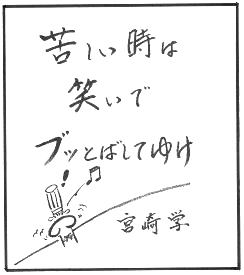 苦しい時は
笑いで
ブッとばしてゆけ
!
宮崎学